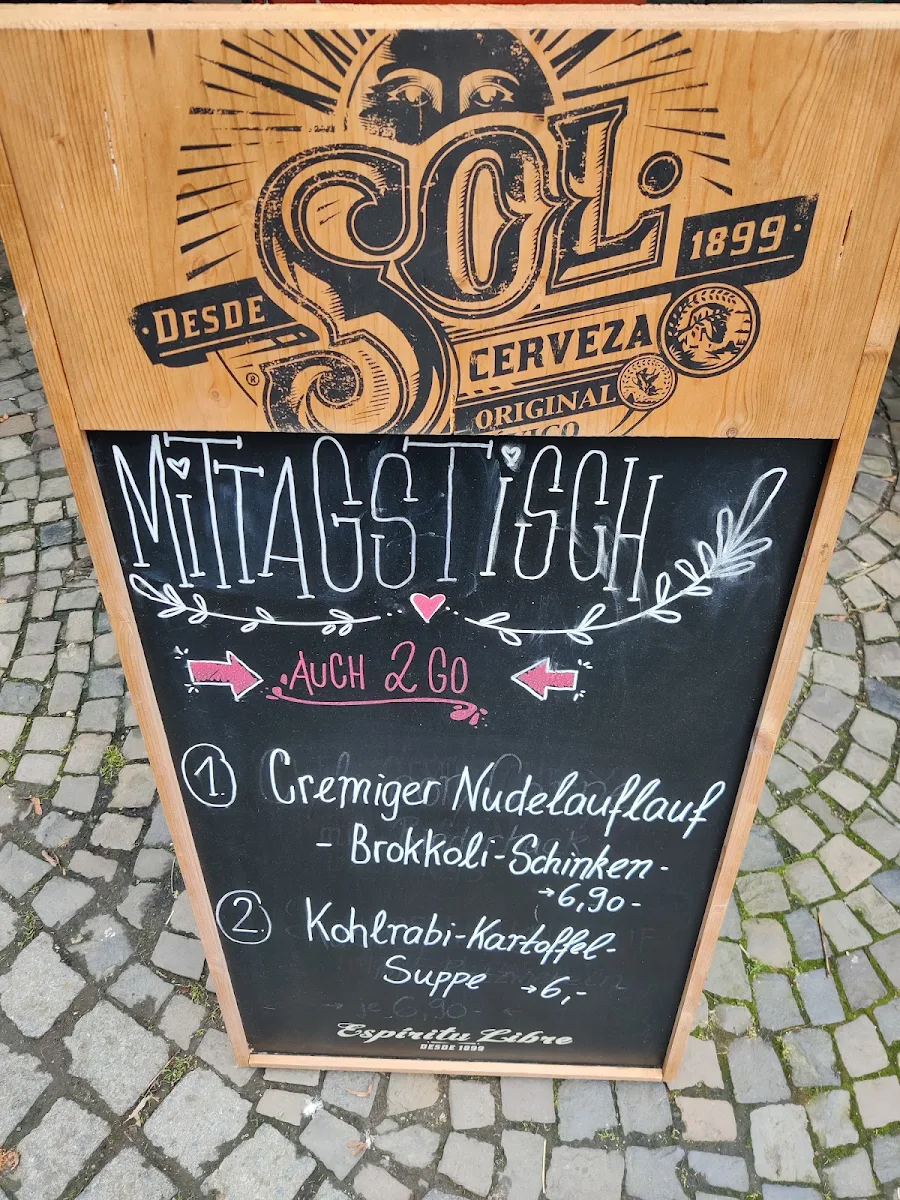 SOL
DESDE
1899
®
CERVEZA
ORIGINAL
MiTTAGSTiSCH
AUCH 2 GO
1. Cremiger Nudelauflauf
- Brokkoli-Schinken-
→ 6,90-
2. Kohlrabi-Kartoffel-
Suppe → 6,-
je 6,90-
Espíritu Libre
DESDE 1899